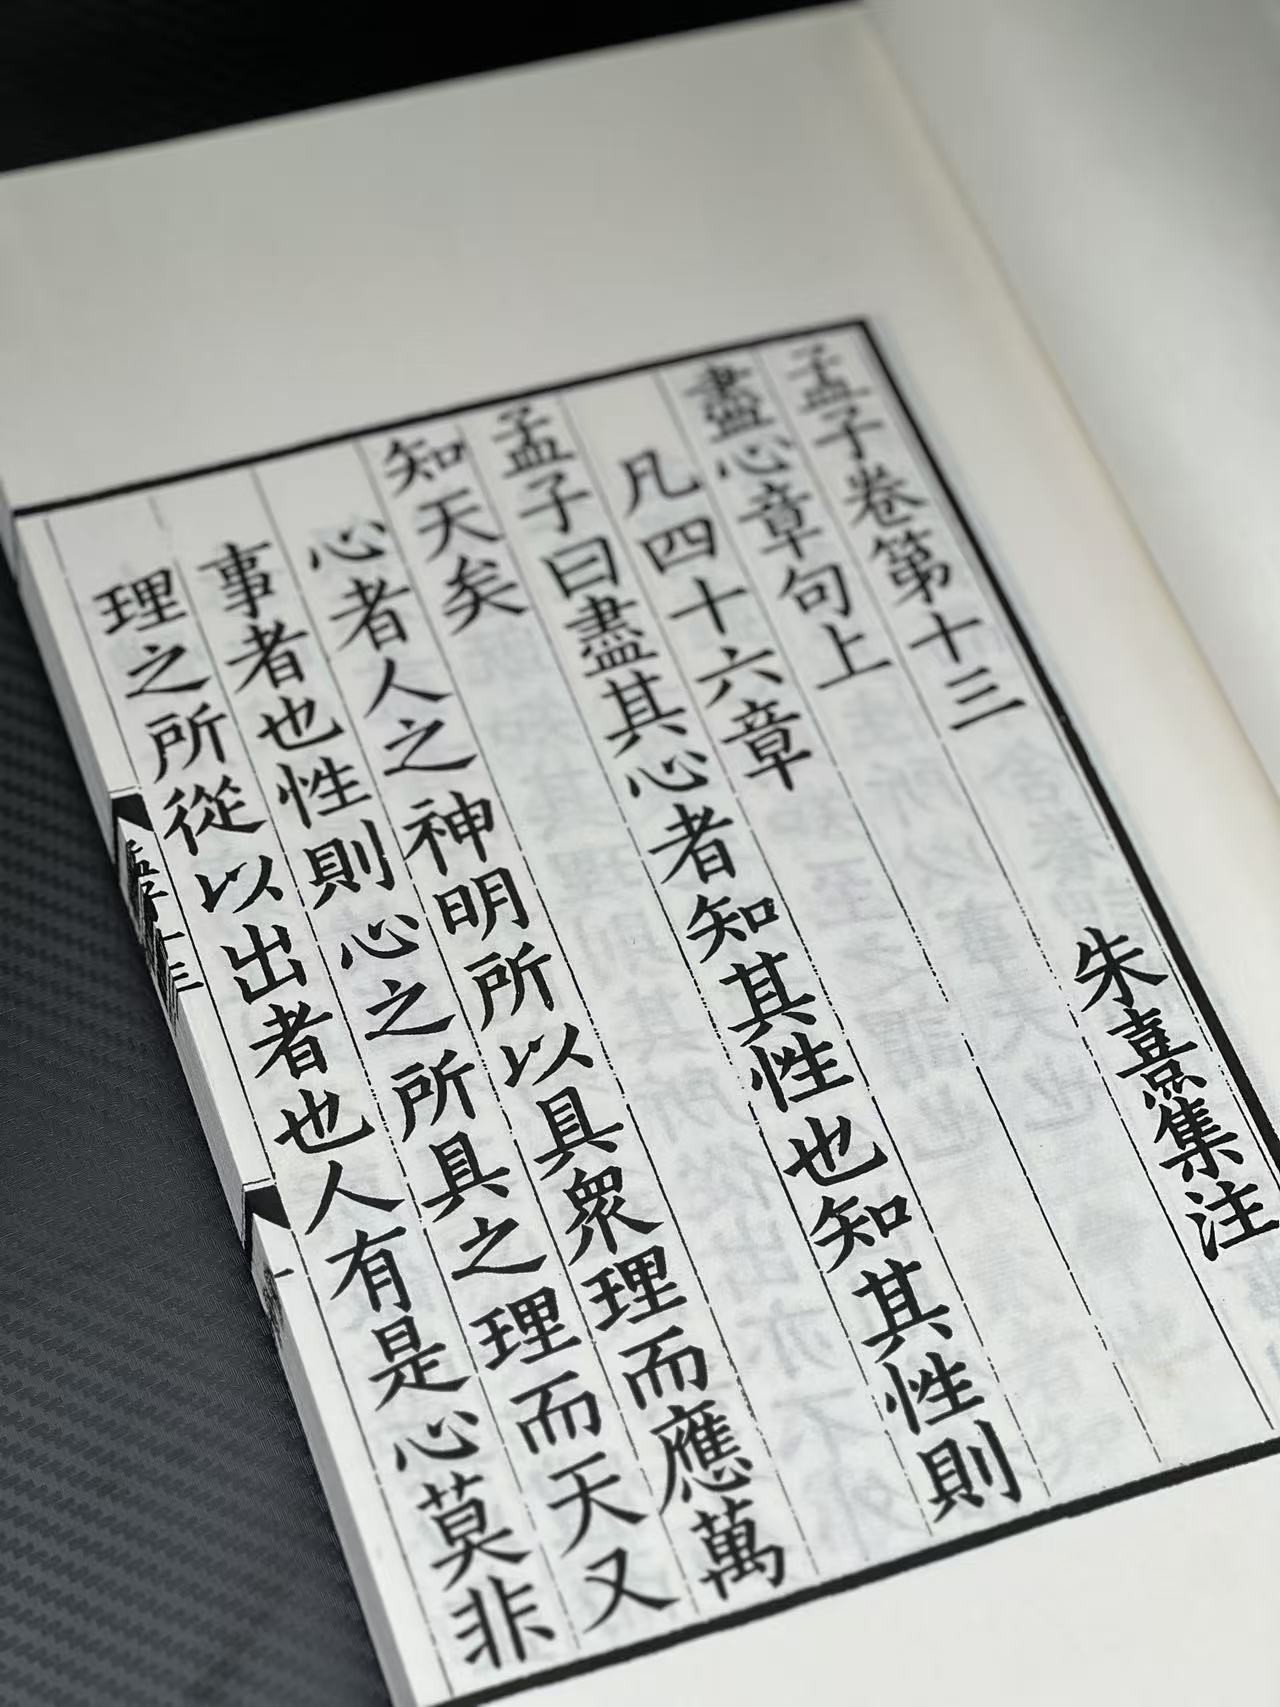 孟子卷第十三
朱熹集注
盡心章句上
凡四十六章
孟子曰盡其心者知其性也知其性則
知天矣
心者人之神明所以具衆理而應萬
事者也性則心之所具之理而天又
理之所從以出者也人有是心莫非
孟子十三
一